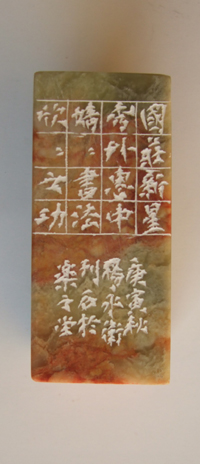 國莊新星
秀外惠中
嬌〻書法
欣〻安功
庚寅秋
楊永衛
刊石於
樂子堂